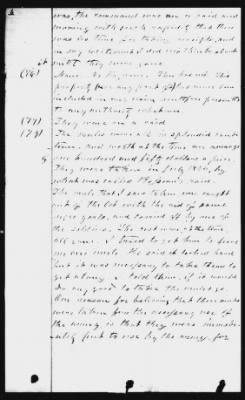 was, the command was on a raid and
moving with such rapidity that there
was no time for taking receipts, and
in my excitement I did not think about
it until they were gone
(76) None. No payment. This has not
property nor any part of it has ever been
included in any claim
or any without
(77) They were on a raid
(78) The mules were all in splendid condi-
tion. And worth at the time on average
one hundred and fifty dollars a piece.
They were taken in July 1864, by
what was called raid
The mule that I saw taken was caught
out of the lot with the aid of some
negro and carried off by one of
the soldiers. The rest were, at the time,
all gone. I tried to get them to leave
me one mule. He said it looked hard
but it was necessary to take them to
get along. I told them, if it would
do any good to take the mules go.
One reason for believing that these mules
were taken for the necessary use of
the army, is that they were immedi-
ately put to use by the army, for